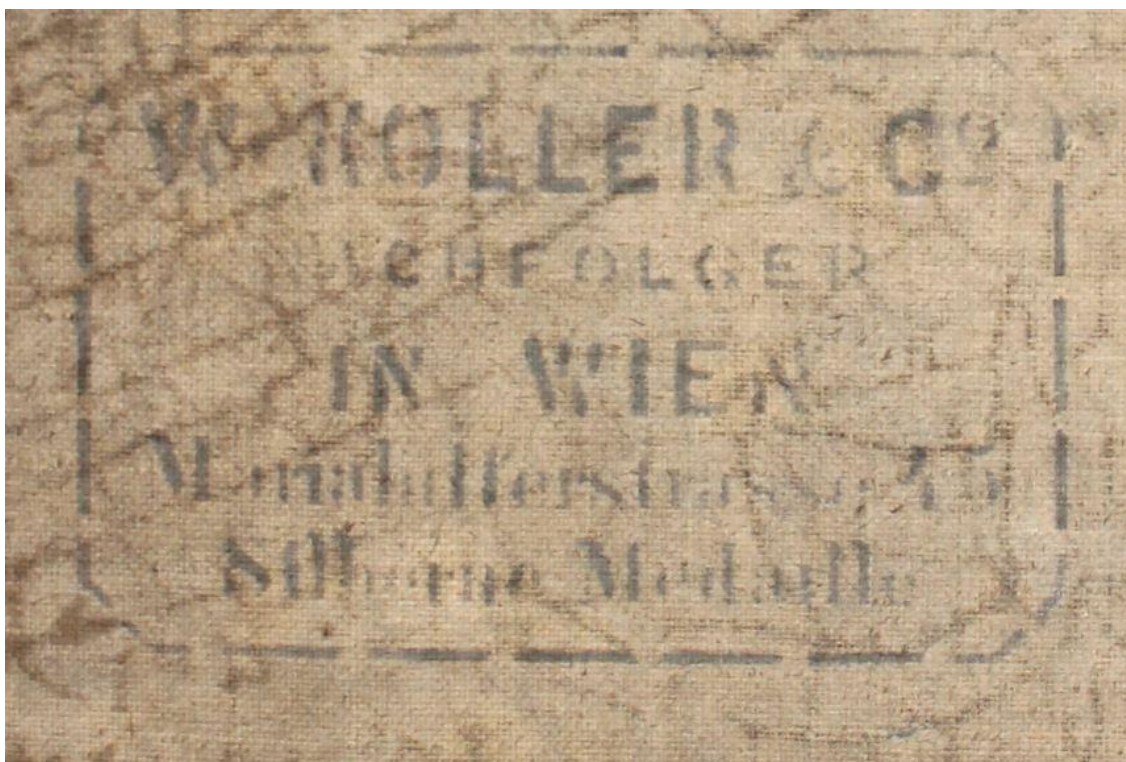 W. KOLLER & Cº
NACHFOLGER
IN WIEN
Mariahilferstrasse
Silberne Medaille